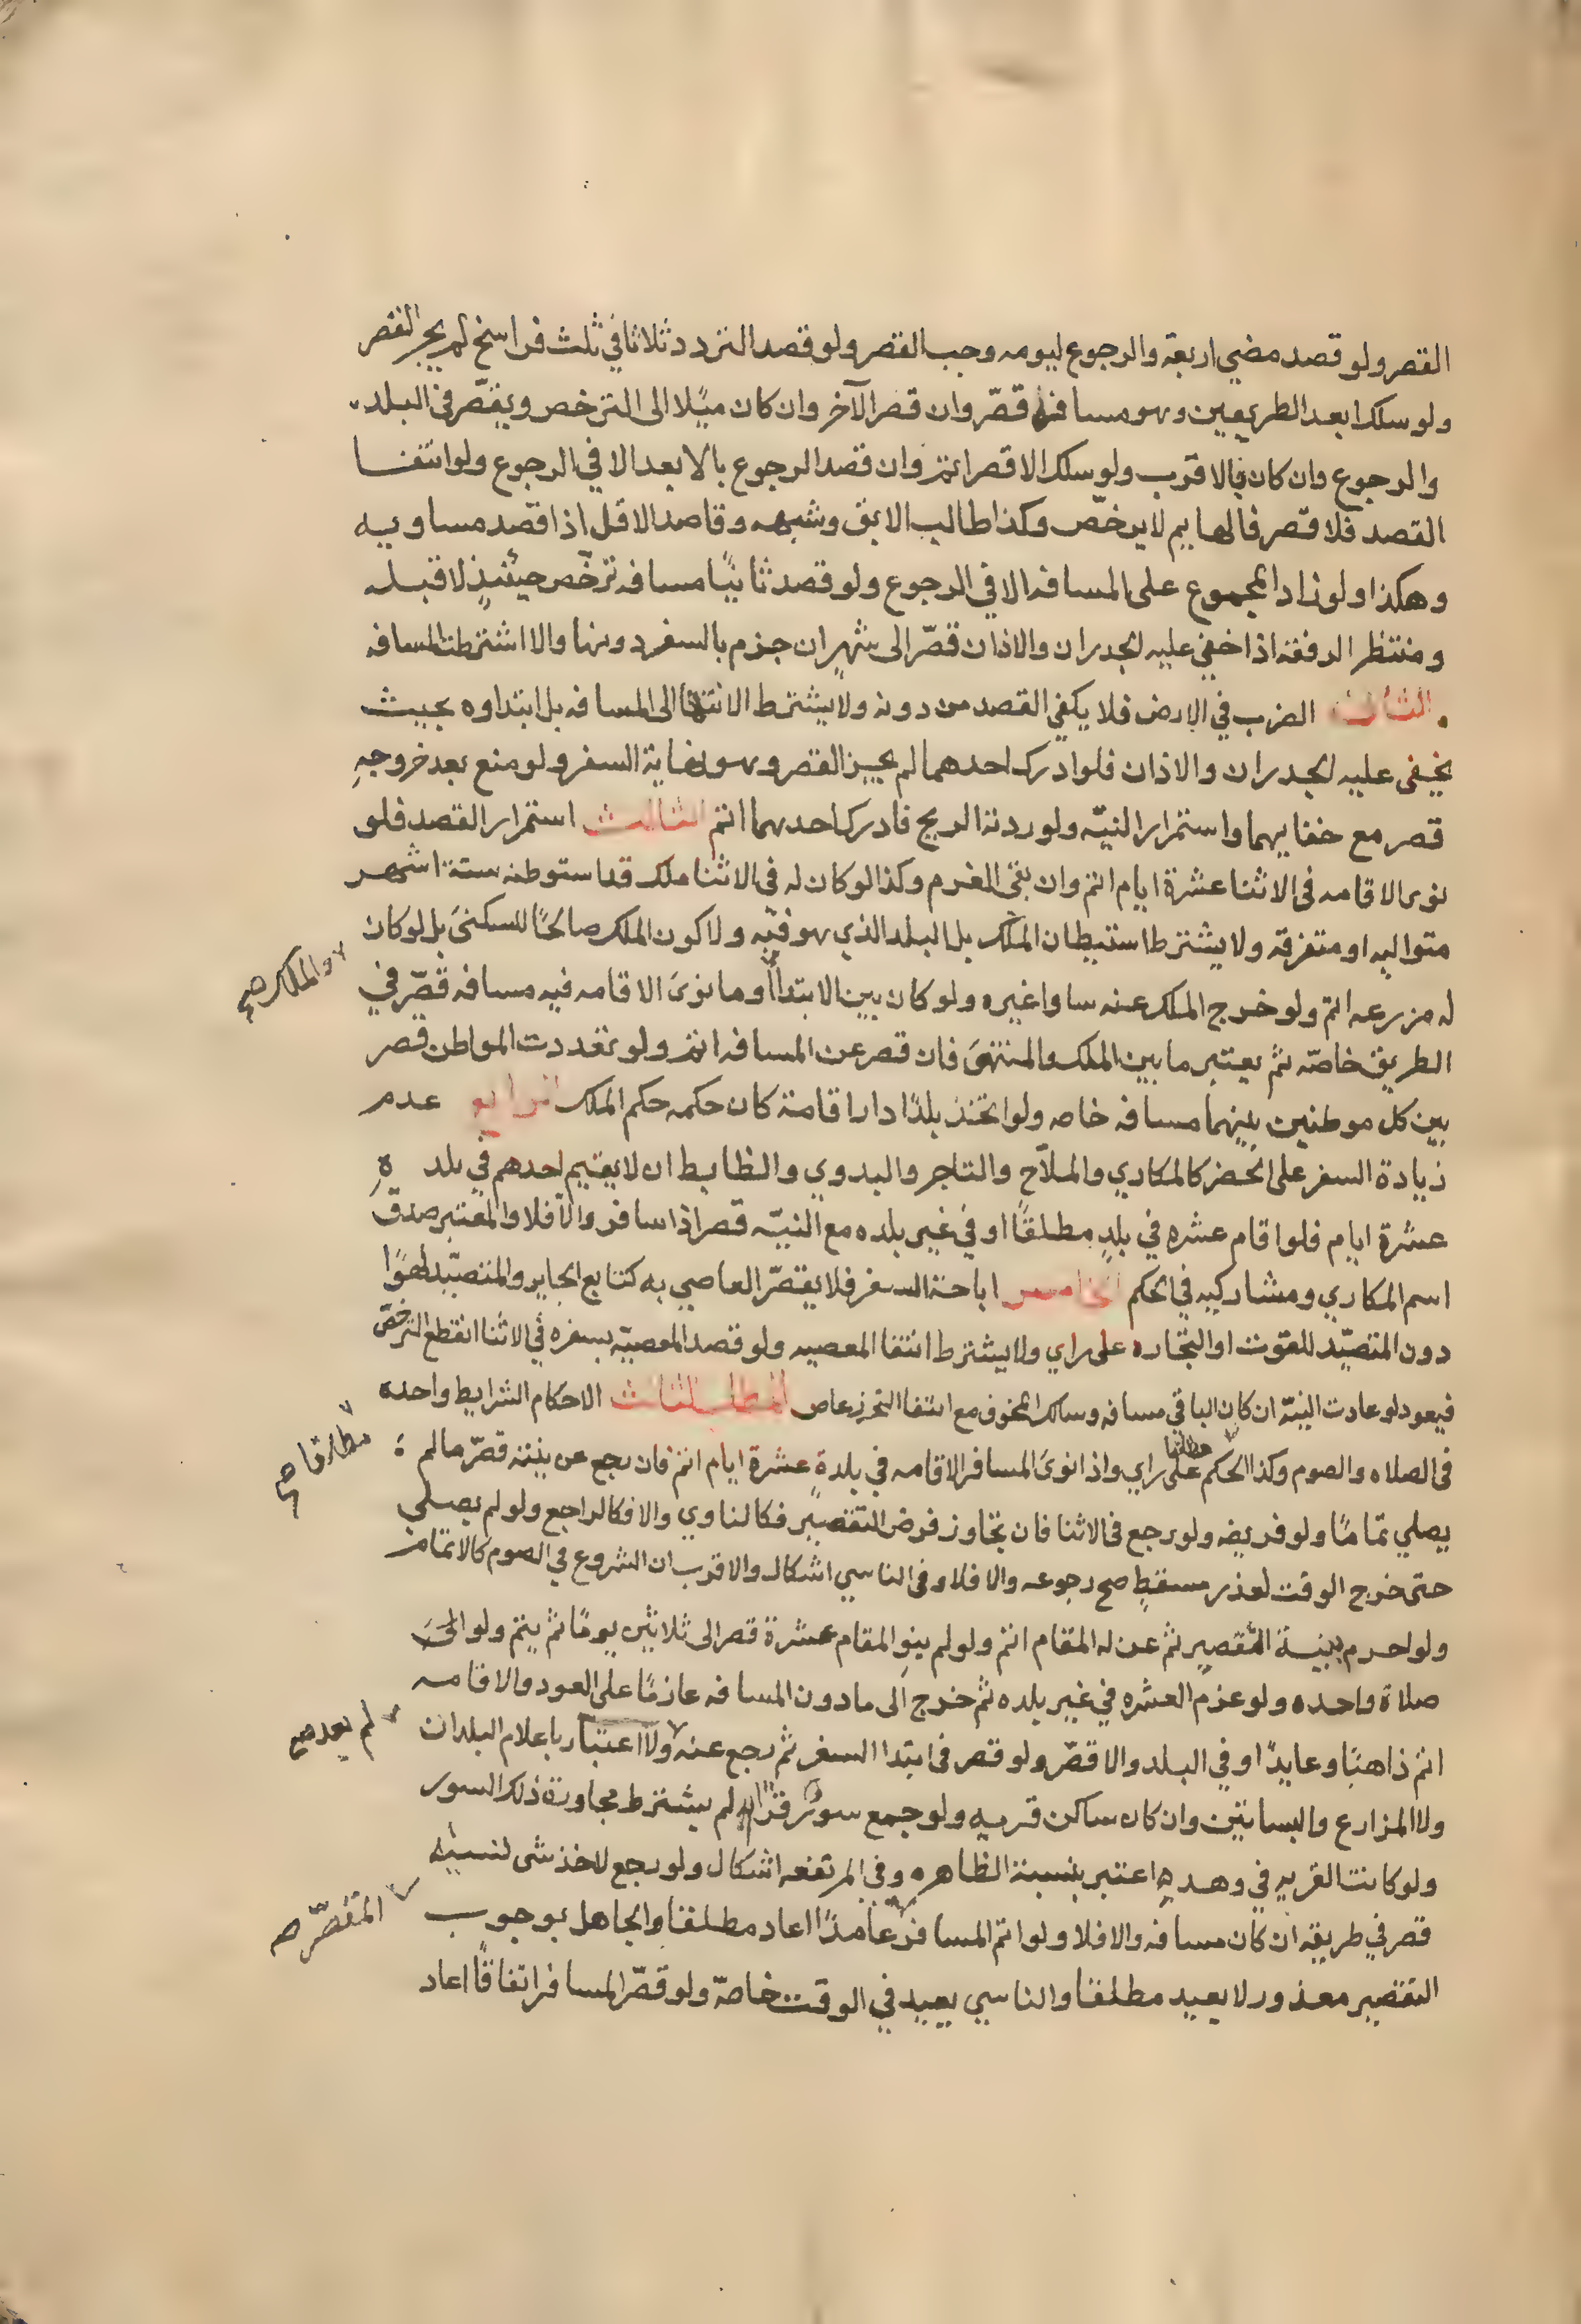 القصر ولو قصد مضي اربعة والرجوع ليومه وجب القصر ولو قصد التردد ثلاثا في ثلث فراسخ لم يجز القصر
ولو سلك ابعد الطريقين وهو مسافة قصّر وان قصر الآخر وان كان ميلا الى الترخص ويقصّر في البلد
والرجوع وان كان بالاقرب ولو سلك الاقصر اتم وان قصد الرجوع بالابعد الا في الرجوع ولو انتفا
القصد فلا قصر فالهايم لا يرخّص وكذا طالب الابق وشبهه وقاصد الاقل اذا قصد مساويه
وهكذا ولو زاد المجموع على المسافه الا في الرجوع ولو قصد ثانيًا مسافه ترخّص حينئذٍ لا قبله
ومنتظر الرفقه اذا خفي عليه الجدران والاذان قصّر الى شهرٍ ان جزم بالسفر دونها والا اشترطت المسافه
الثاني الضرب في الارض فلا يكفي القصد من دونه ولا يشترط الانتها الى المسافه بل ابتداوه بحيث
يخفى عليه الجدران والاذان فلو ادرك احدهما لم يجز القصر وهو نهاية السفر ولو منع بعد خروجهِ
قصر مع خفايهما واستمرار النيّه ولو ردته الريح فادرك احدهما اتم الثالث استمرار القصد فلو
نوى الاقامه في الاثنا عشرة ايام اتم وان بقى العزم وكذا لو كان له في الاثنا ملك قد استوطنه ستة اشهر
متواليه او متفرقه ولا يشترط استيطان الملك بل البلد الذي هو فيه ولا كون الملك صالحًا للسكنى بل لو كان
له مزرعه اتم ولو خرج الملك عنه ساوا غيره ولو كان بين الابتدأ وما نوى الاقامه فيه مسافه قصّر في
والملك صح
الطريق خاصّه ثم يعتبر ما بين الملك والمنتهى فان قصر عن المسافه اتم ولو تعددت المواطن قصر
بين كل موطنين بينهما مسافه خاصه ولو اتخذ بلدًا دار اقامة كان حكمه حكم الملك الرابع عدم
زيادة السفر على الحضر كالمكاري والملّاح والتاجر والبدوي والظابط ان لا يقيم احدهم في بلده
عشرة ايام فلو اقام عشره في بلدٍ مطلقًا او في غير بلده مع النيّه قصر اذا سافر والّا فلا والمعتبر صدق
اسم المكاري ومشاركيه في الحكم الخامس اباحة السفر فلا يقصّر العاصي به كتابع الجاير والمتصيّد لهوًا
دون المتصيّد للقوت او التجاره على راي ولا يشترط انتفا المعصيه ولو قصد المعصيّه بسفره في الاثنا انقطع الترخّص
فيعود لو عادت النيّه ان كان الباقي مسافه وسالك المخوف مع انتفا التحرز عاص المطلب الثالث الاحكام الشرايط واحده
في الصلاه والصوم وكذا الحكم مطلقا على راي واذا نوى المسافر الاقامه في بلدةٍ عشرة ايام اتم فان رجع عن نيته قصّر ما لم
يصلي تمامًا ولو فريضه ولو رجع في الاثنا فان تجاوز فرض التقصير فكالناوي والا فكالراجع ولو لم يصلي
حتى خرج الوقت لعذر مسقطٍ صح رجوعه والا فلا وفي الناسي اشكال والاقرب ان الشروع في الصوم كالاتمام
ولو احرم بنية التقصير ثم عن له المقام اتم ولو لم ينوِ المقام عشرة قصر الى ثلاثين يومًا ثم يتم ولو
صلاة واحده ولو عزم العشره في غير بلده ثم خرج الى ما دون المسافه عازمًا على العود والاقامه
اتم ذاهبًا وعايدًا وفي البلد والا قصّر ولو قصر في ابتدا السفر ثم رجع عنه ولا اعتبار باعلام البلدان
لم يعد صح
ولا المزارع والبساتين وان كان ساكن قريه ولو جمع سور قرا لم يشترط مجاوزة ذلك السور
ولو كانت القريه في وهدهٍ اعتبر بنسبة الظاهره وفي المرتفعه اشكال ولو رجع لاخذ شى نسيه
قصر في طريقه ان كان مسافه والا فلا ولو اتم المسافر عامدًا اعاد مطلقا والجاهل بوجوب
المقصّر صح
التقصير معذور لا يعيد مطلقا والناسي يعيد في الوقت خاصّه ولو قصّر المسافر اتفاقًا اعاد